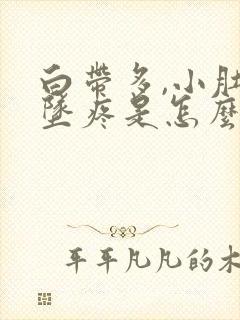 白带多,小肚
坠疼是怎麼
平平凡凡的木